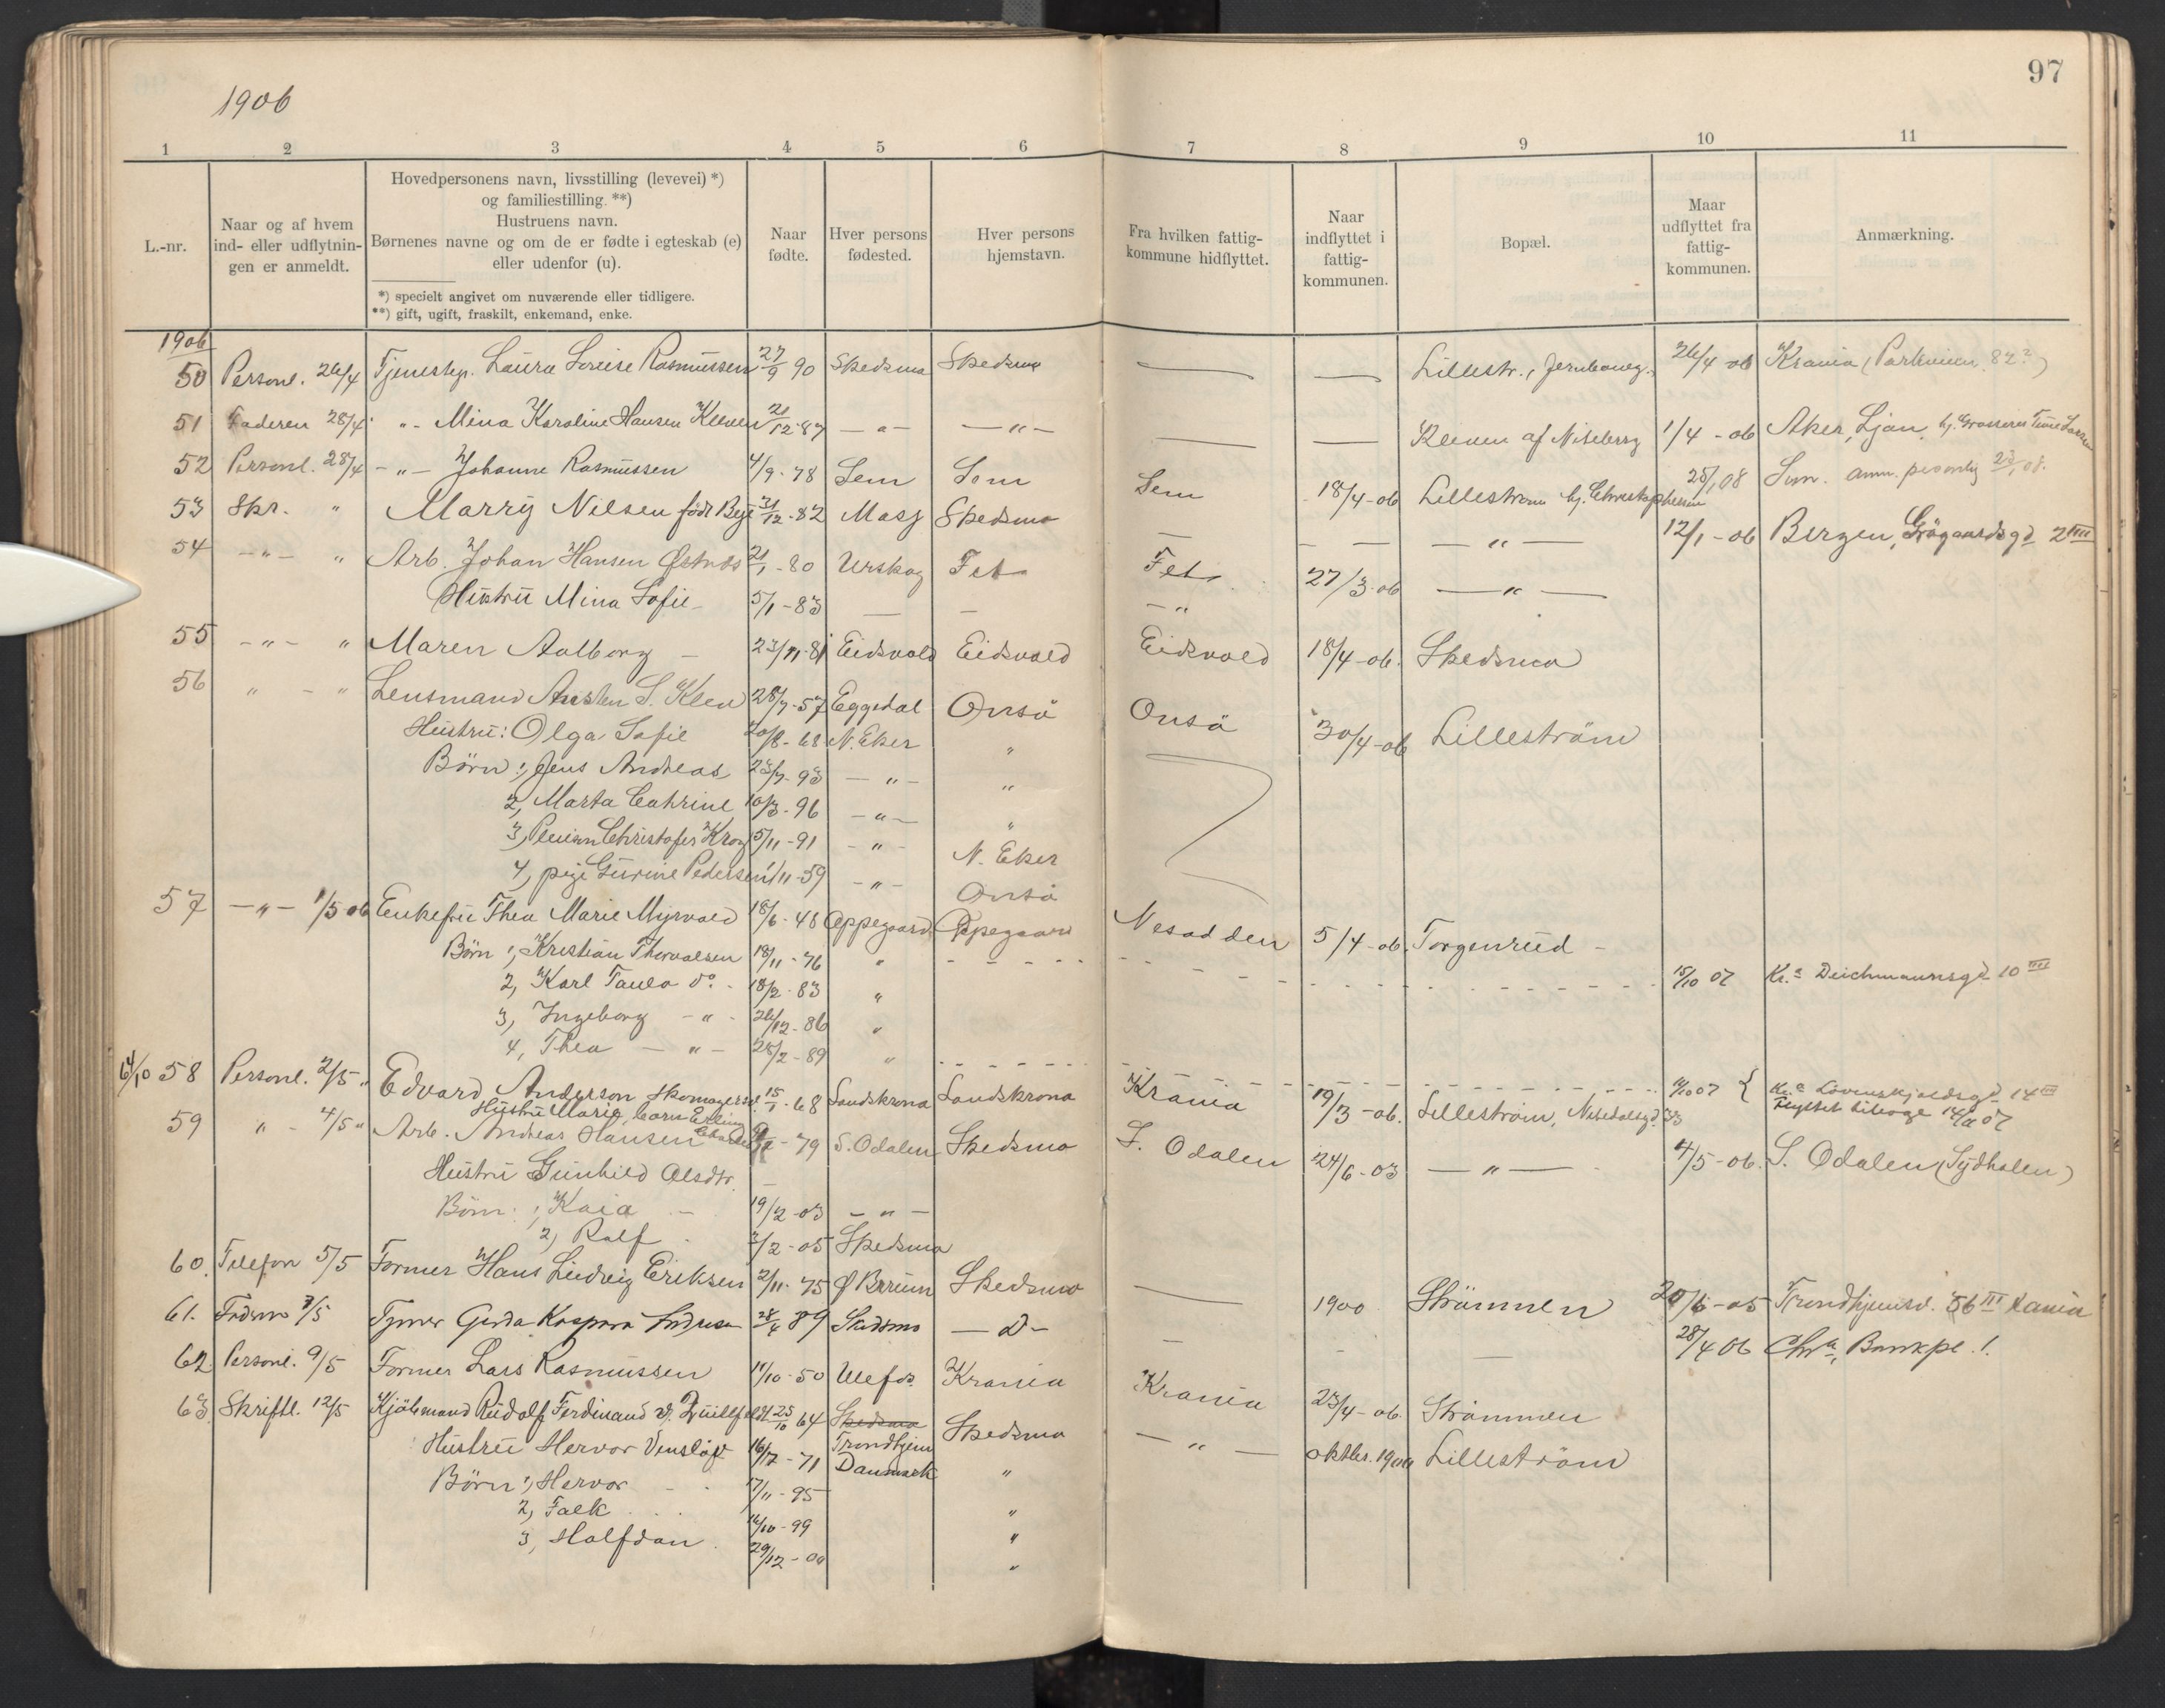 1906
97
1 2 3 4 5 6 7 8 9 10 11
L.-nr.
Naar og af hvem ind- eller udflytningen er anmeldt.
Hovedpersonens navn, livsstilling (levevei) *)
og familiestilling. **)
Hustruens navn.
Børnenes navne og om de er fødte i egteskab (e)
eller udenfor (u).
*) specielt angivet om nuværende eller tidligere.
**) gift, ugift, fraskilt, enkemand, enke.
Naar fødte.
Hver persons fødested.
Hver persons hjemstavn.
Fra hvilken fattigkommune hidflyttet.
Naar indflyttet i fattigkommunen.
Bopæl.
Maar udflyttet fra fattigkommunen.
Anmærkning.
1906
50 Personl. 26/4 Tjenestep. Laura Lovise Rasmussen 27/9 90 Skedsmo Skedsmo — — Lillestr., Jernbaneg. 26/4 06 Krania (Parkveien 82²)
51 Faderen 28/4 -"- Mina Karoline Hansen Kleven 21/12 87 -"- -"- — — Kleven af Niteberg 1/4 - 06 Aker, Ljan, hj. Grosserer
52 Personl. 28/4 -"- Johanne Rasmussen 4/9 - 78 Sem Sem Sem 18/4 - 06 Lillestrøm hj. Christophersen 25/1 08 Sem. anm. personlig
53 Skr. " Marry Nilsen født 31/12 - 82 Moss Skedsmo — - - -"- 12/1 - 06 Bergen,
54 -"- " Arb. Johan Hansen Østnes 21/1 - 80 Urskog Fet Fet 27/3 - 06 -"-
Hustru Mina Sofie - 5/1 - 83 — — -"-
55 -"- " Maren Aalborg - 23/11 - 81 Eidsvold Eidsvold Eidsvold 18/4 - 06. Skedsmo
56 " - " Lensmand S. Kleu 28/7 - 57 Eggedal Onsö Onsö 30/4 - 06 Lilleström
Hustru: Olga Sofie 20/8 - 68 N. Eker "
Börn: 1, Jens Andreas 23/7 - 93 -"- "
2, Marta Cathrine 10/3 - 96 -"- "
3, Christofer Krog 15/11 - 91 -"- N. Eker
4, pige Gurine Pedersen 1/11 - 59 -"- Onsö
57 -"- 1/5 06 Enkefru Thea Marie Myrvold 18/6 - 48 Oppegaard Oppegaard Nesodden 5/4 - 06. Torgenrud -
Börn 1, Kristian Thorvalsen 18/11 - 76 "
2, Karl Paulo do. - 18/2 - 83 " 15/10 07 Kr.a Deichmannsgd 10 IIII
3, Ingeborg -"- 26/12 - 86 "
4, Thea -"- 25/2 - 89 "
58 Personl. 2/5 " Edvard Anderson skomagersv. 15/1 - 68 Landskrona Landskrona Krania 19/3 - 06. Lilleström, Nitedalsgd. 33 07 { Kr.a Lövenskjoldsgd 14 III
Hustru Marie, barn Flyttet tilbage 07
59 " - 4/5 " Arb. Andreas Hansen - 79 S. Odalen Skedsmo S. Odalen 24/6 - 03 -"- 4/5 - 06. S. Odalen
Hustru Gunhild Olsdtr. —
Börn: 1, Kaia - 19/2 - 03 -"-
2, Ralf . 2/2 - 05 Skedsmo
60. Telefon 5/5 Former Hans Ludvig Eriksen 2/11 - 75 Ø Bærum Skedsmo — 1900 Strömmen 20/6 - 05 Trondhjemsv. 56 III Kania
61. 7/5 Tjener Gerda Kaspara Andresen 28/4 89 Skedsmo - D - — - — 28/4 06 Chr.a, Bankpl. 1.
62 Personl. 9/5 Former Lars Rasmussen 11/10 - 50 Ulefos Krania Krania 23/4 - 06. Strömmen
63. Skriftl. 12/5 Kjöbmand Rudolf Ferdinand v. 25/10 64 Skedsmo Trondhjem Skedsmo -"- oktbr. 1900 Lilleström
Hustru Hervor Vensløv 16/7 - 71 Danmark "
Börn 1, Hervor - . 17/11 - 95 "
2, Falk . . . 16/10 - 99 "
3, Halfdan . 29/12 - 00 "